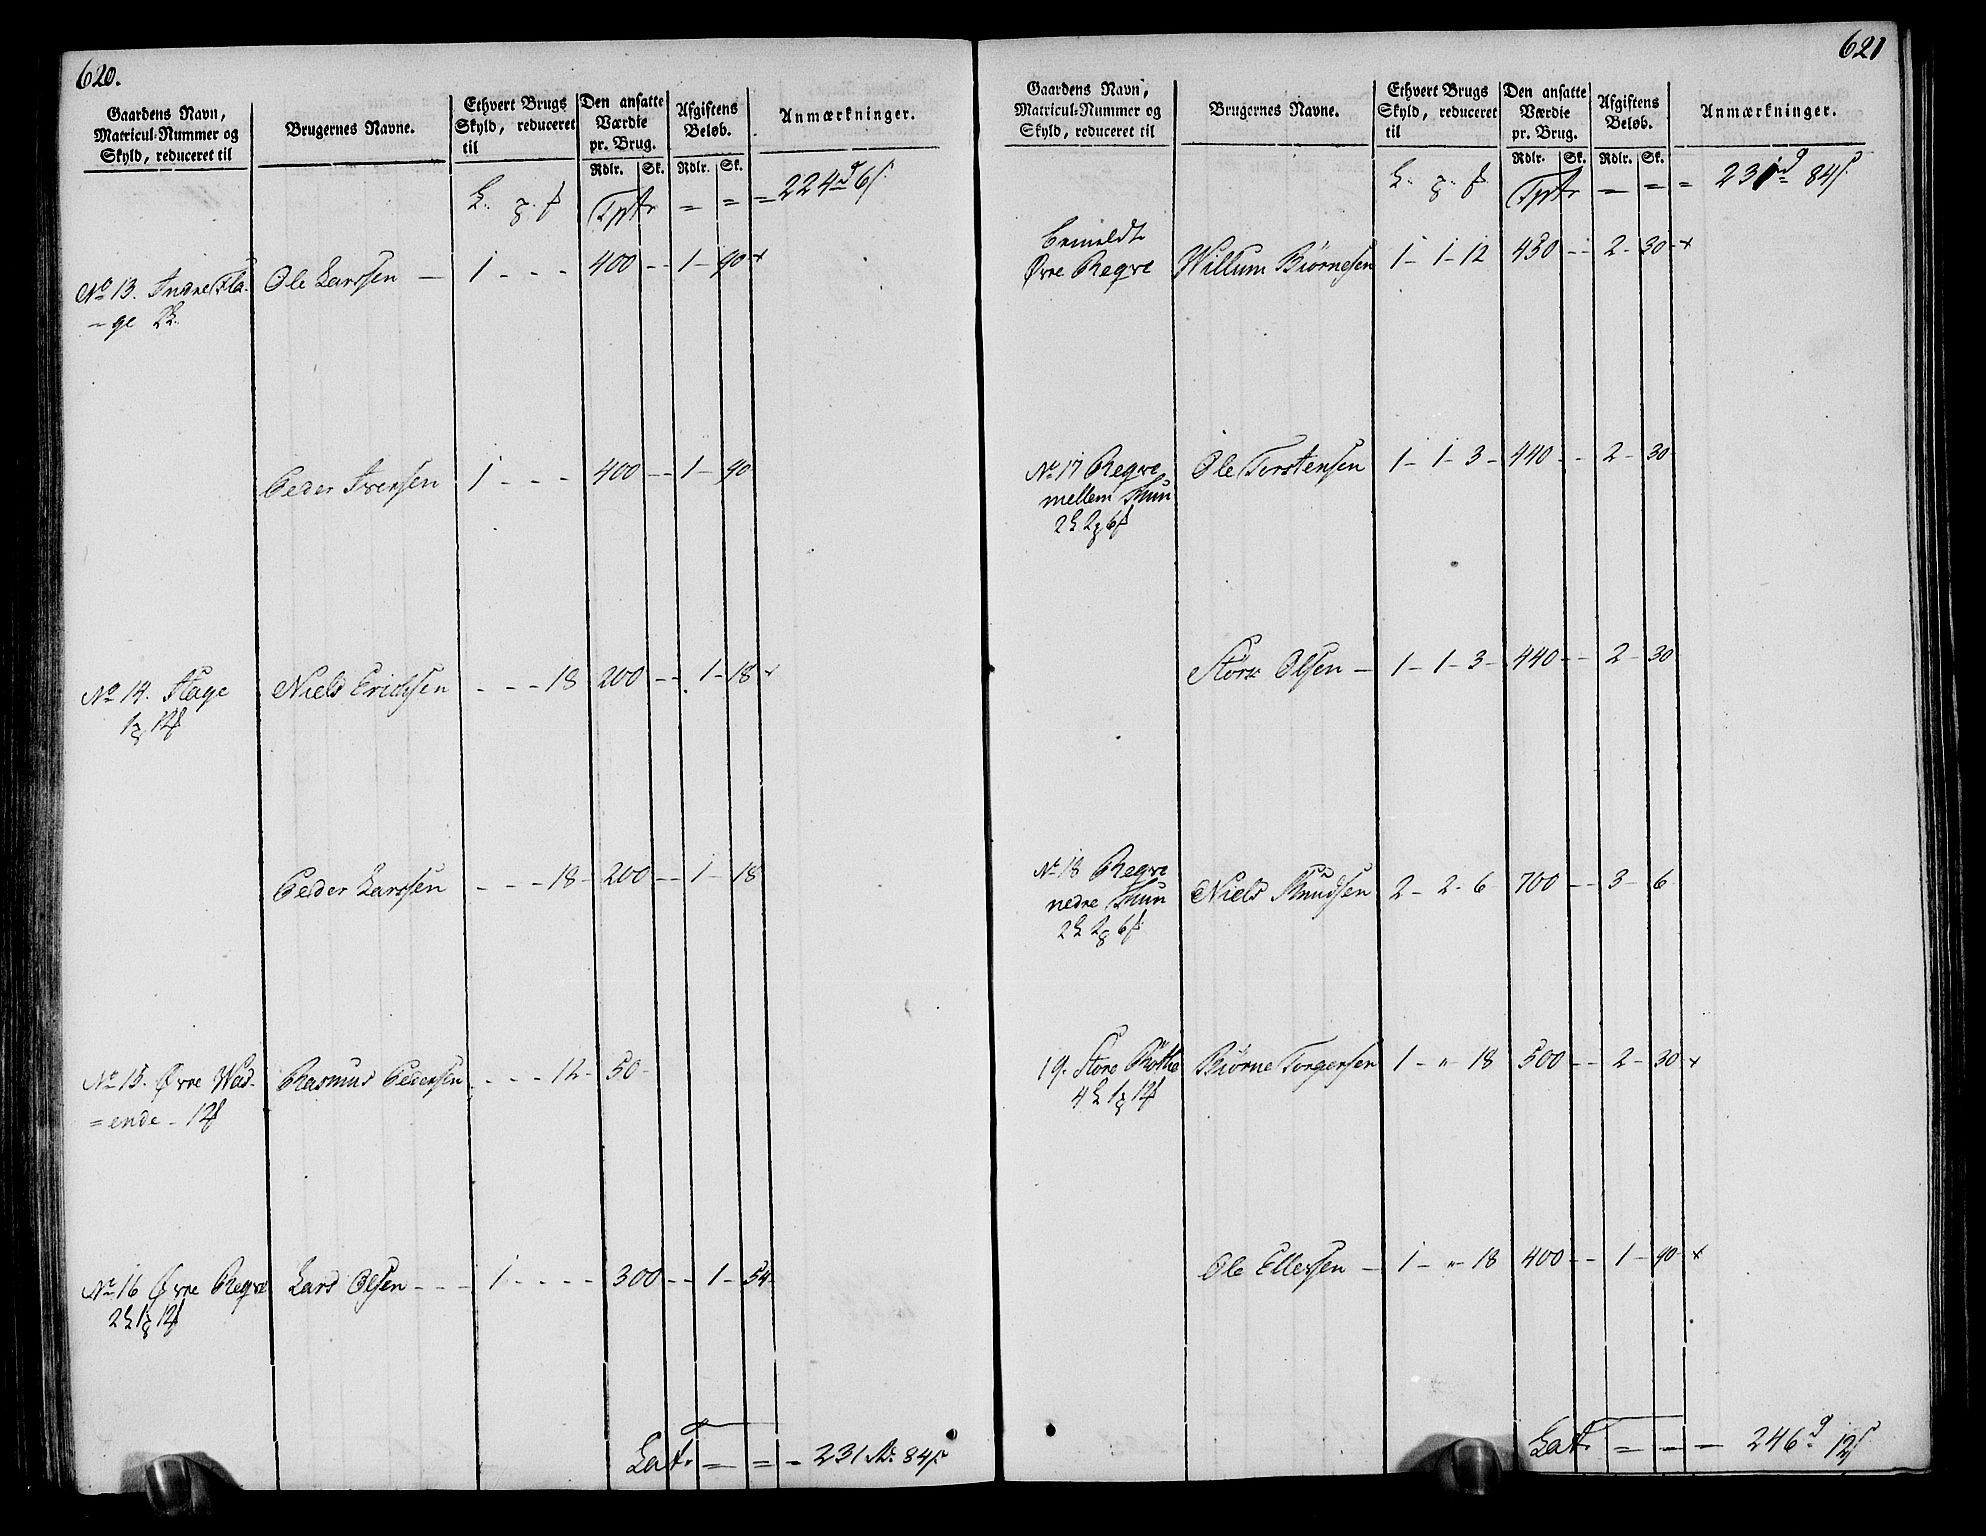 620.
Gaardens Navn, Matricul-Nummer og Skyld, reduceret til
Brugernes Navne.
Ethvert Brugs Skyld, reduceret til
Den ansatte Værdie pr. Brug.
Afgiftens Beløb.
Anmærkninger.
Rdlr. Sk. Rdlr. Sk.
Tptr = = = 224 d 6 s
No 13. Indre Fla- Ole Larssen — 1 - - - 400 - - 1 - 90 +
- ge 2
Peder Iversen 1 - - - 400 - - 1 - 90
No 14. Flage Niels Erichsen - - - 18 200 - - 1 - 18 +
Peder Larssen - - - 18 - 200 - - 1 - 18
No 15. Øvre Wad- Rasmus Pedersen - - - 12 - 50 -
= ende - 12
No 16 Øvre Reqve Lars Olsen - - - 1 - - - - 300 - - 1 - 54
Lat. = = - 231 Rd 84 s
621
Gaardens Navn, Matricul-Nummer og Skyld, reduceret til
Brugernes Navne.
Ethvert Brugs Skyld, reduceret til
Den ansatte Værdie pr. Brug.
Afgiftens Beløb.
Anmærkninger.
Rdlr. Sk. Rdlr. Sk.
Tptr = = = 231 d 84 s
bemeldt
Øvre Reqve Willum Biørnesen 1 - 1 - 12 450 - - 2 - 30 - +
No 17 Reqve Ole Torstensen 1 - 1 - 3 - 440 - - 2 - 30
mellem
Olsen — 1 - 1 - 3 - 440 - - 2 - 30
No 18 Reqve
nedre Niels Knudsen 2 - 2 - 6 700 - - 3 - 6
19. Store Røthe Biørne Torgersen 1 - " - 18 500 - - 2 - 30 +
Ole Ellefsen - 1 - " - 18 400 - - 1 - 90 +
Lat. = - - 246 d 12 s